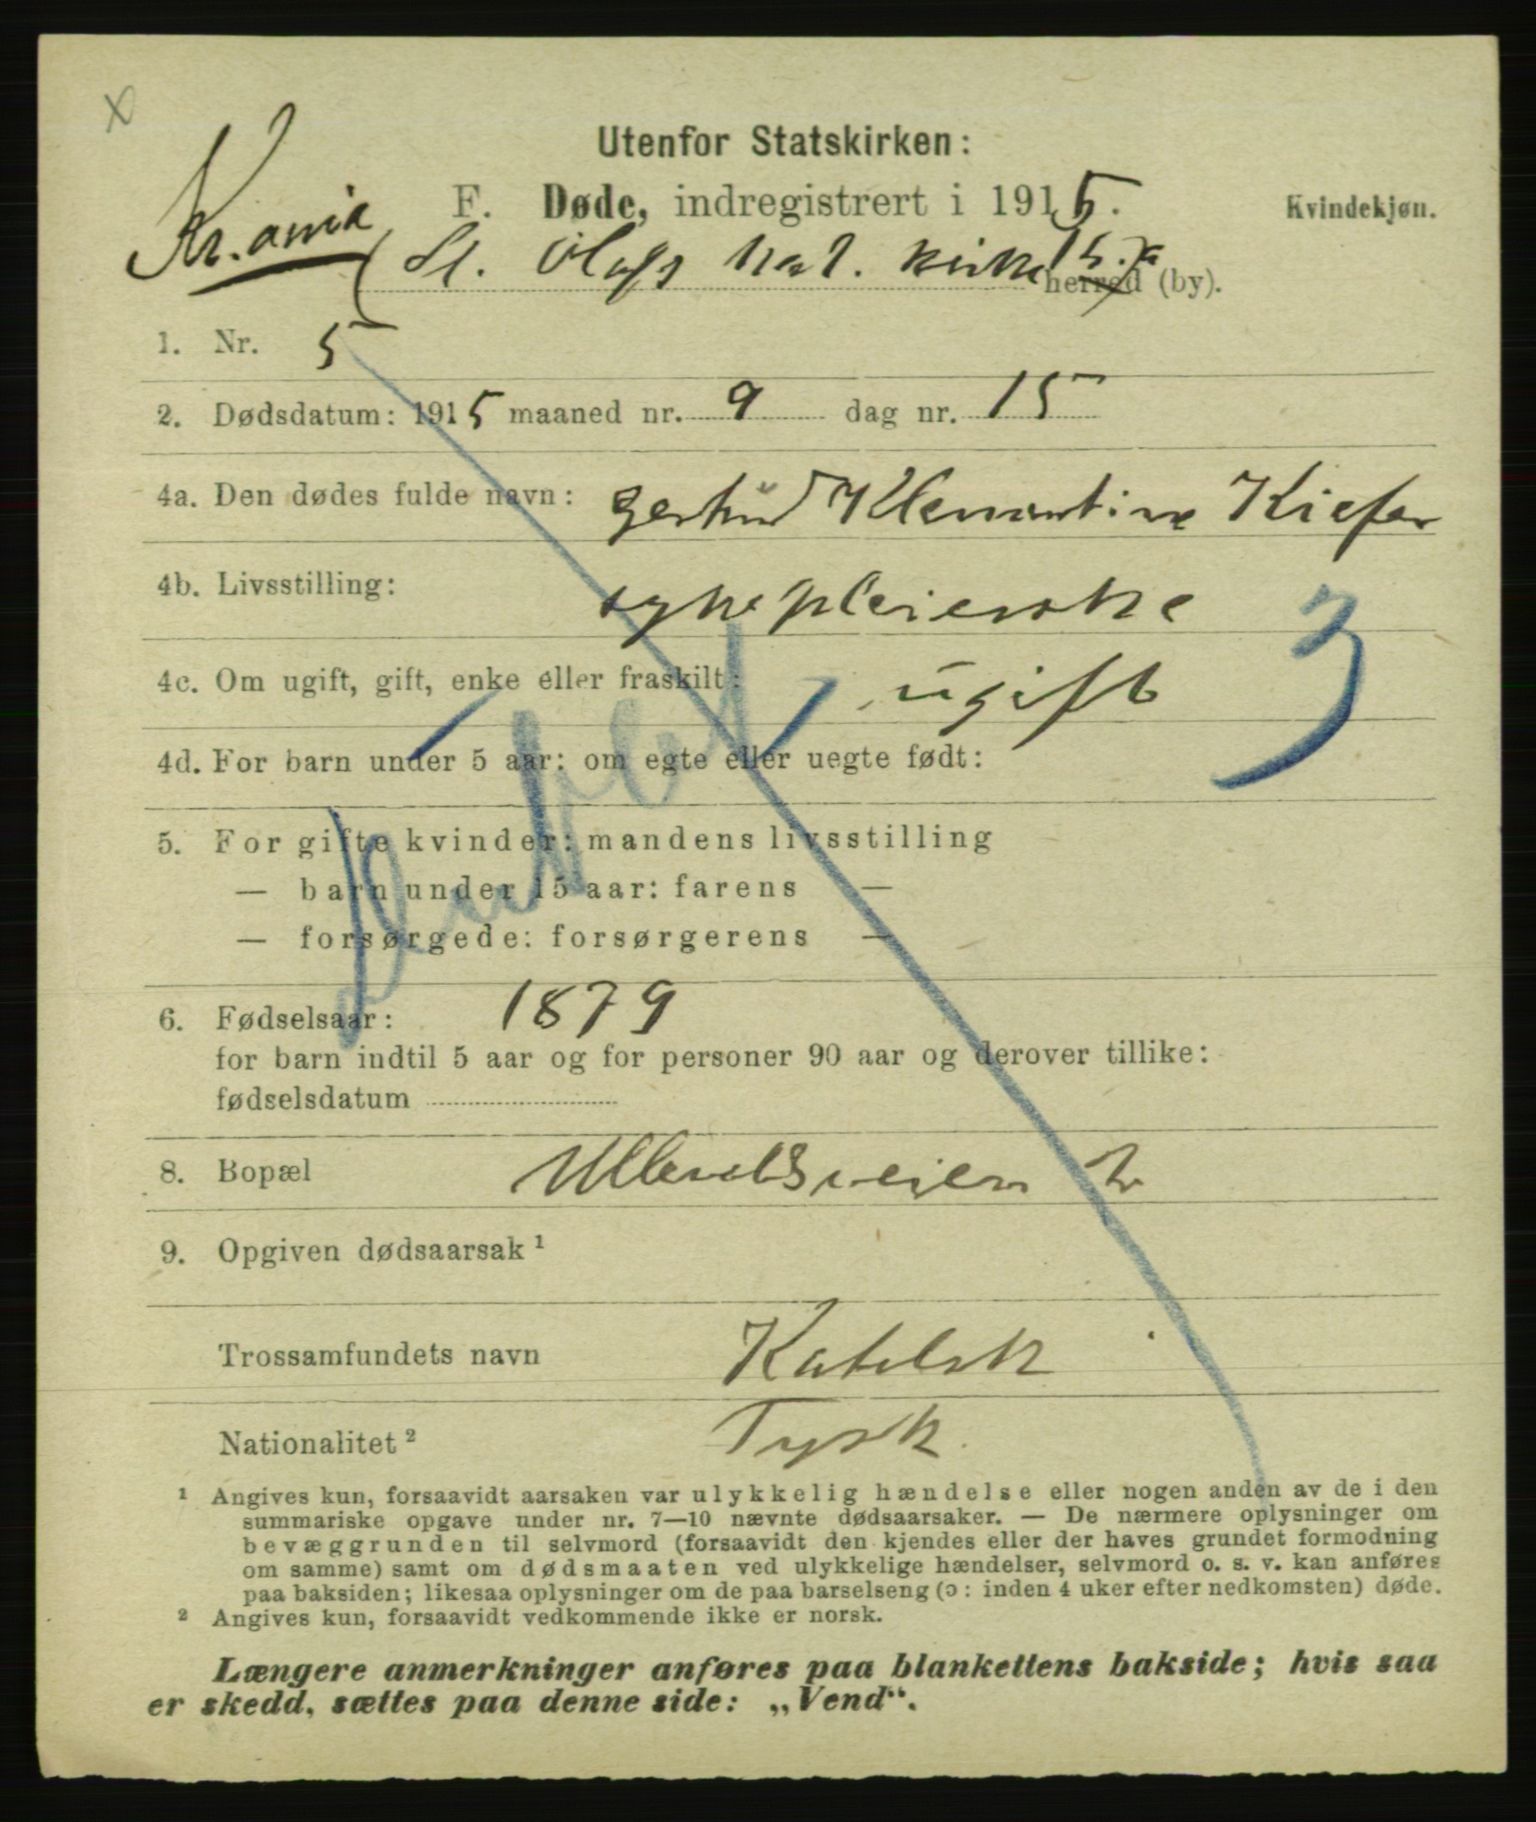 Utenfor Statskirken:
F. Døde, indregistrert i 1915.
Kvindekjøn.
Kr.ania
St. Olafs kat. kirke
herred (by).
1. Nr. 5
2. Dødsdatum: 1915 maaned nr. 9 dag nr. 15
4a. Den dødes fulde navn: Gertrud Klementine Kiefer
4b. Livsstilling: sykepleierske
3
4c. Om ugift, gift, enke eller fraskilt: ugift
4d. For barn under 5 aar: om egte eller uegte født:
5. For gifte kvinder: mandens livsstilling
— barn under 15 aar: farens —
— forsørgede: forsørgerens —
6. Fødselsaar: 1879
for barn indtil 5 aar og for personer 90 aar og derover tillike:
fødselsdatum
8. Bopæl Ullevoldsveien 2
9. Opgiven dødsaarsak ¹
Trossamfundets navn Katolsk
Nationalitet ² Tysk
¹ Angives kun, forsaavidt aarsaken var ulykkelig hændelse eller nogen anden av de i den
summariske opgave under nr. 7—10 nævnte dødsaarsaker. — De nærmere oplysninger om
bevæggrunden til selvmord (forsaavidt den kjendes eller der haves grundet formodning
om samme) samt om dødsmaaten ved ulykkelige hændelser, selvmord o. s. v. kan anføres
paa baksiden; likesaa oplysninger om de paa barselseng (ɔ: inden 4 uker efter nedkomsten) døde.
² Angives kun, forsaavidt vedkommende ikke er norsk.
Længere anmerkninger anføres paa blankettens bakside; hvis saa
er skedd, sættes paa denne side: „Vend“.